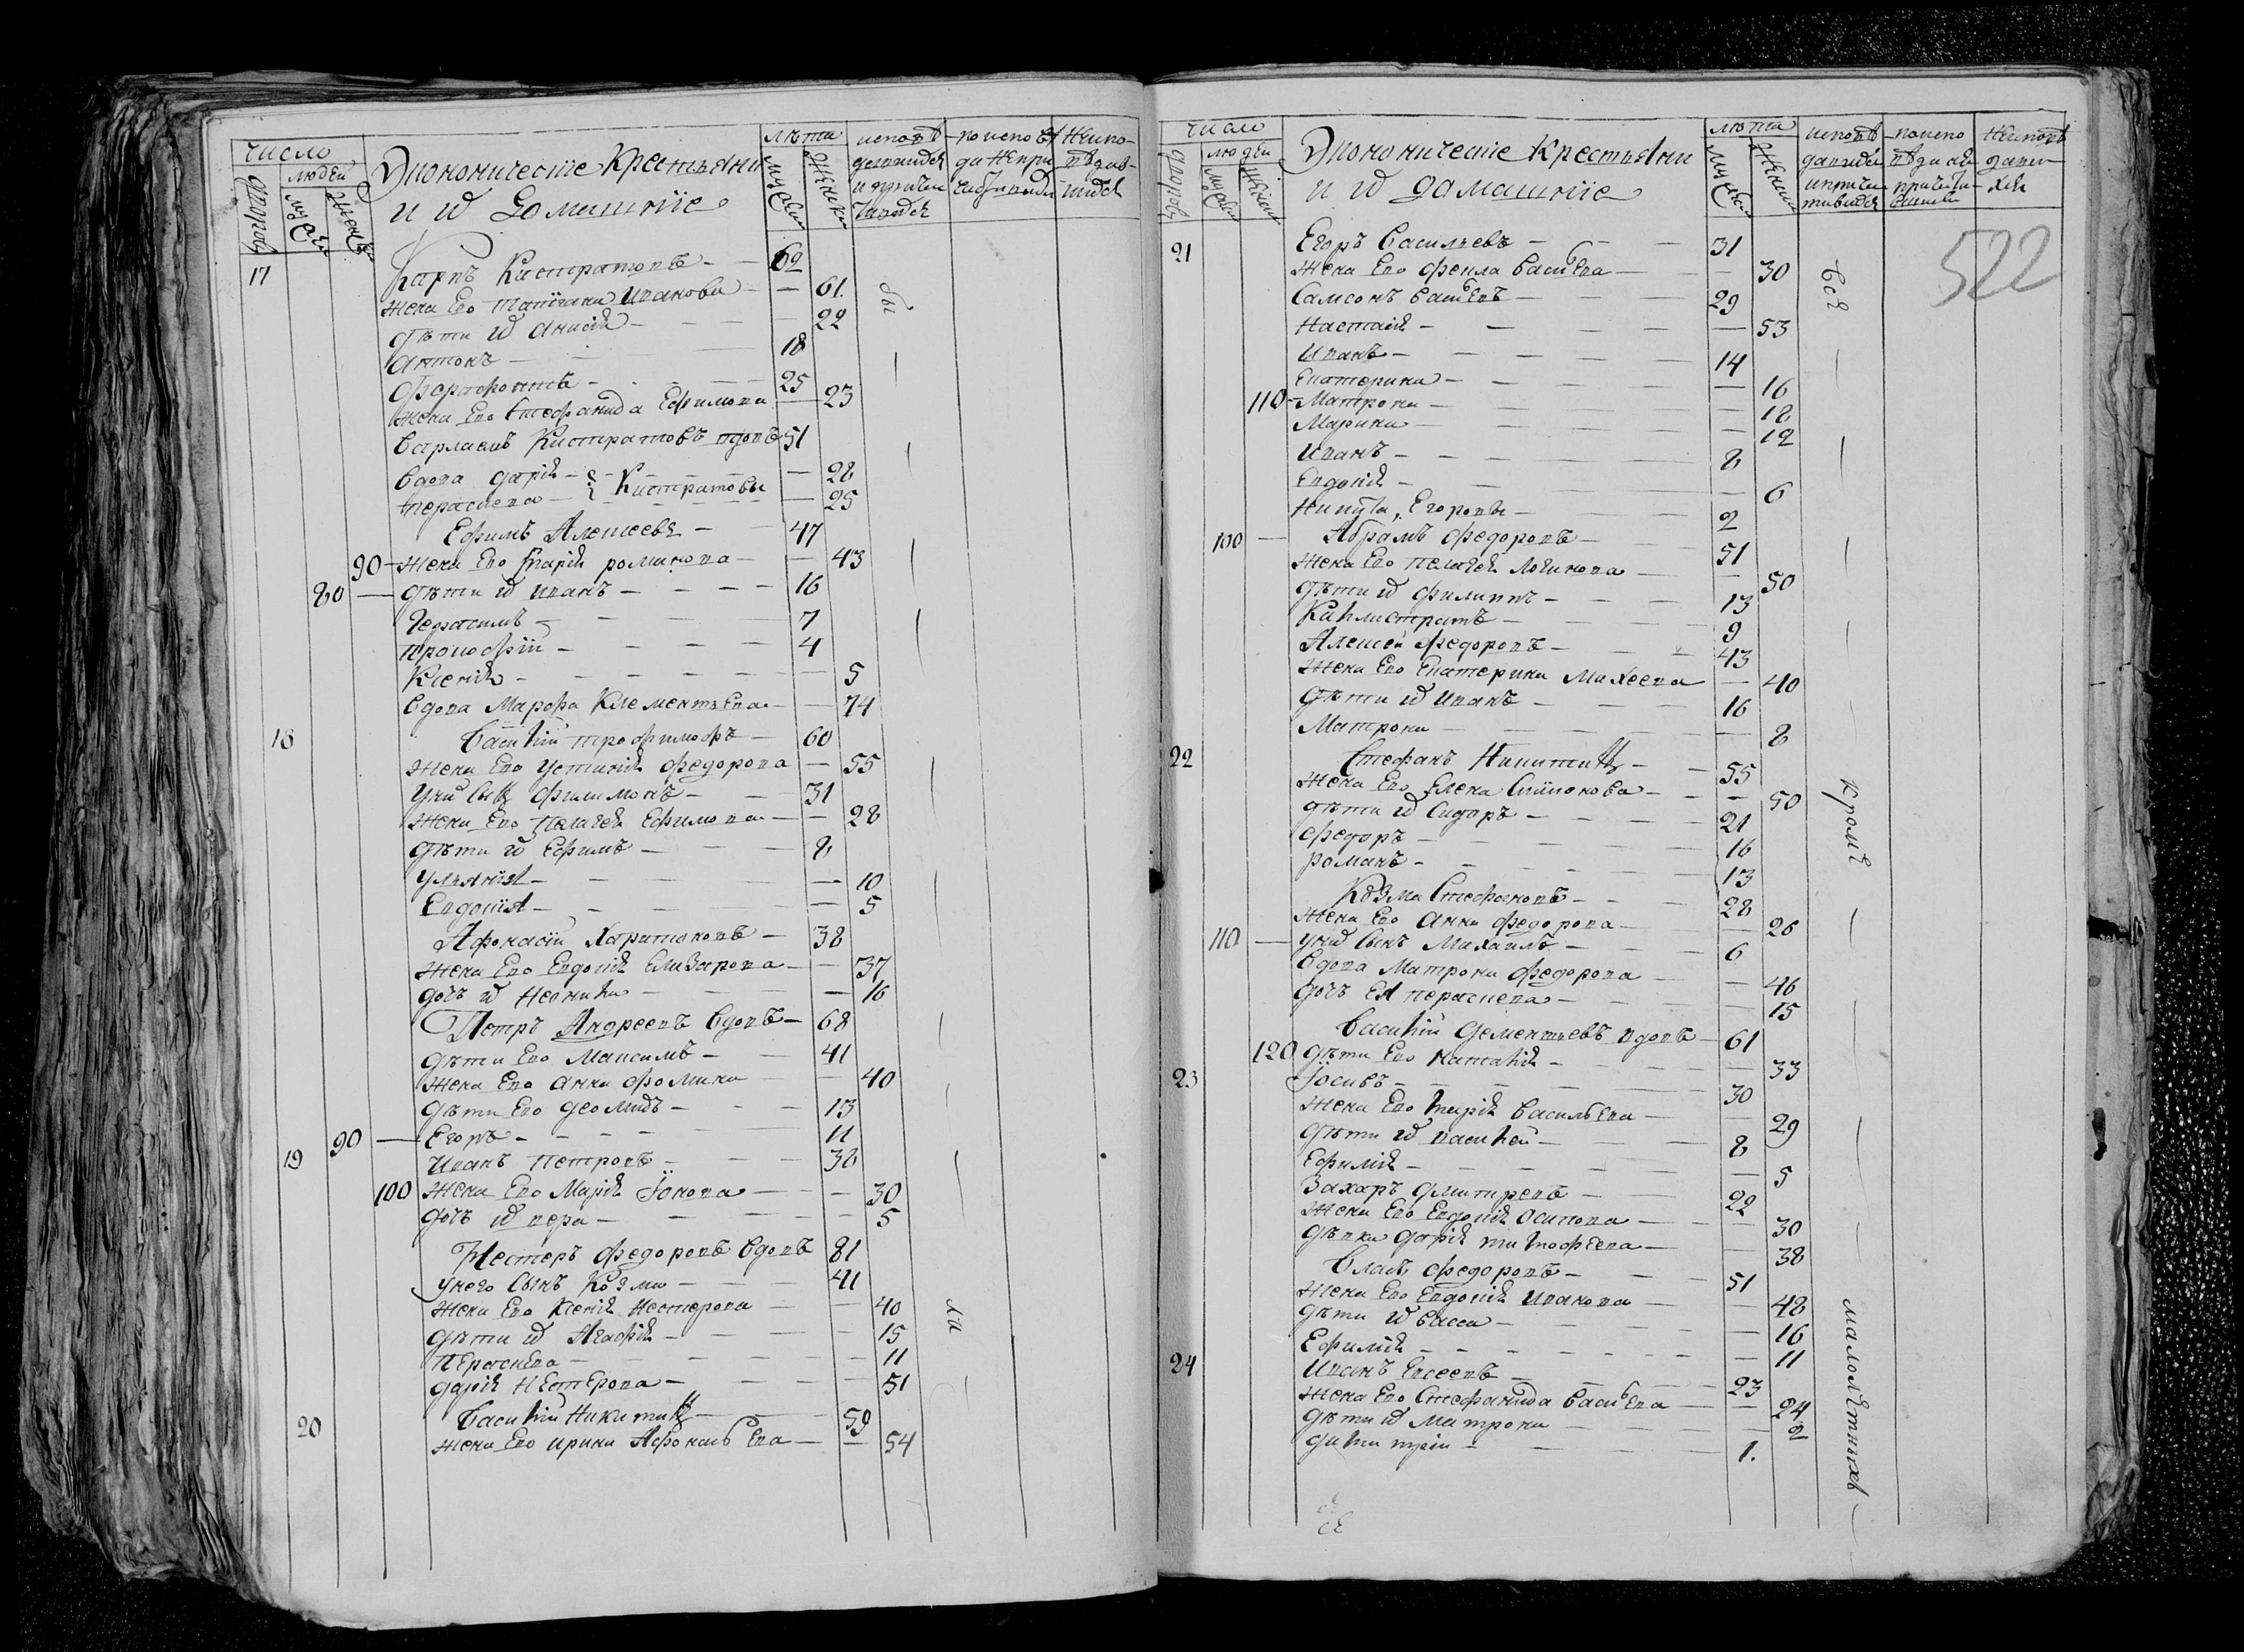 число
людей
дворовъ
мужеск
женск
Экономическiе Крестьяни
и иỏ домашнiе
лѣта
мужеск
женск
17
Карпъ Кистратовъ — 62
жена Ево Татiана Иванова — 61
дѣти иỏ Анисiя — 22
Антонъ — 18
Ферафонтъ — 25
жена Ево Стефанида Ефимова — 23
Варлаамъ Кистратовъ вдовъ 51
Вдова Дарiя — 28
Параскева — Кистратовы — 25
Ефимъ Алексеевъ — 47
90 — жена Ево Дарiя романова — 43
80 — дѣти иỏ иванъ — 16
Герасимъ — 7
прокофiй — 4
Ксенiя — 5
Вдова Марфа Клементьева — 74
18
Василiй трофимофъ — 60
жена Ево Устинiя федорова — 55
у ниỏ сынъ Филимонъ — 31
жена Ево Пелагея Ефимова — 28
дѣти иỏ Ефимъ — 8
ульянiя — 10
Евдокiя — 5
Афонасiй Харитоновъ — 38
жена Ево Евдокiя Елизарова — 37
дочь иỏ Неонила — 16
Петръ Андреевъ вдовъ — 68
дѣти Ево Максимъ — 41
жена Ево Анна фомина — 40
дѣти Ево Деомидъ — 13
90 — Егоръ — 11
19
иванъ Петровъ — 38
100 жена Ево Марiя Iонова — 30
дочь иỏ вера — 5
Нестеръ Федоровъ вдовъ 81
у него сынъ Козма — 41
жена Ево Ксенiя Нестерова — 40
дѣти иỏ Агафiя — 15
Параскева — 11
дарiя Нестерова — 51
20
Василiй Никитинъ — 59
жена Ево ирина Афонасьева — 54
бы
ли
число
людей
дворовъ
мужеск
женск
Экономическiе Крестьяни
и иỏ домашнiе
лѣта
мужеск
женск
522
21
Егоръ Васильевъ — 31
жена Ево фекла Васильева — 30
Самсонъ Васильевъ — 29
Настасiя — 53
Иванъ — 14
Екатерина — 16
110 — Матрона — 18
Марина — 12
Иванъ — 8
Евдокiя — 6
Никита, Егоровы — 2
100 — Абрамъ федоровъ — 51
жена Ево пелагея Логинова — 50
дѣти иỏ филиппъ — 13
Каллистратъ — 9
Алексей федоровъ — 43
жена Ево Екатерина Михеева — 40
дѣти иỏ иванъ — 16
Матрона — 8
22
Стефанъ Никитинъ — 55
жена Ево Елена Симонова — 50
дѣти иỏ Сидоръ — 21
Федоръ — 16
романъ — 13
Козма Стефановъ — 28
жена Ево Анна федорова — 26
110 — у ниỏ сынъ Михаилъ — 6
Вдова Матрона федорова — 46
дочь Ея параскева — 15
Василiй Дементьевъ вдовъ — 61
120 дѣти Ево наталiя — 33
23
Iосивъ — 30
жена Ево Марiя Васильева — 29
дѣти иỏ василей — 8
Ефимiя — 5
Захаръ Дмитревъ — 22
жена Ево Евдокiя Осипова — 30
дѣвка Дарiя тимофеева — 38
Власъ федоровъ — 51
жена Ево Евдокiя иванова — 48
дѣти иỏ васса — 16
Ефимiя — 11
24
иванъ Евсеевъ — 23
жена Ево Стефанида Васильева — 24
дѣти иỏ Матрона — 2
димитрiи — 1.
Всѣ
Кромѣ
малолѣтныхъ